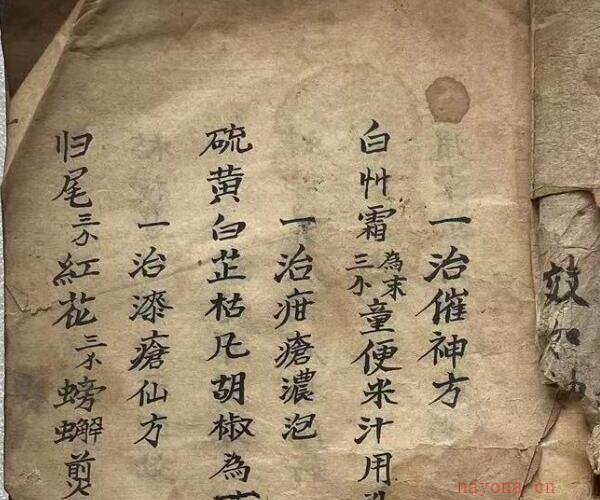 效如神
一治催神方
白艸霜三分為末童便米汁用
一治疳瘡濃泡
硫黄白芷枯凡胡椒為
一治漆瘡仙方
归尾三分紅花三分螃蠏煎
nayona.cn